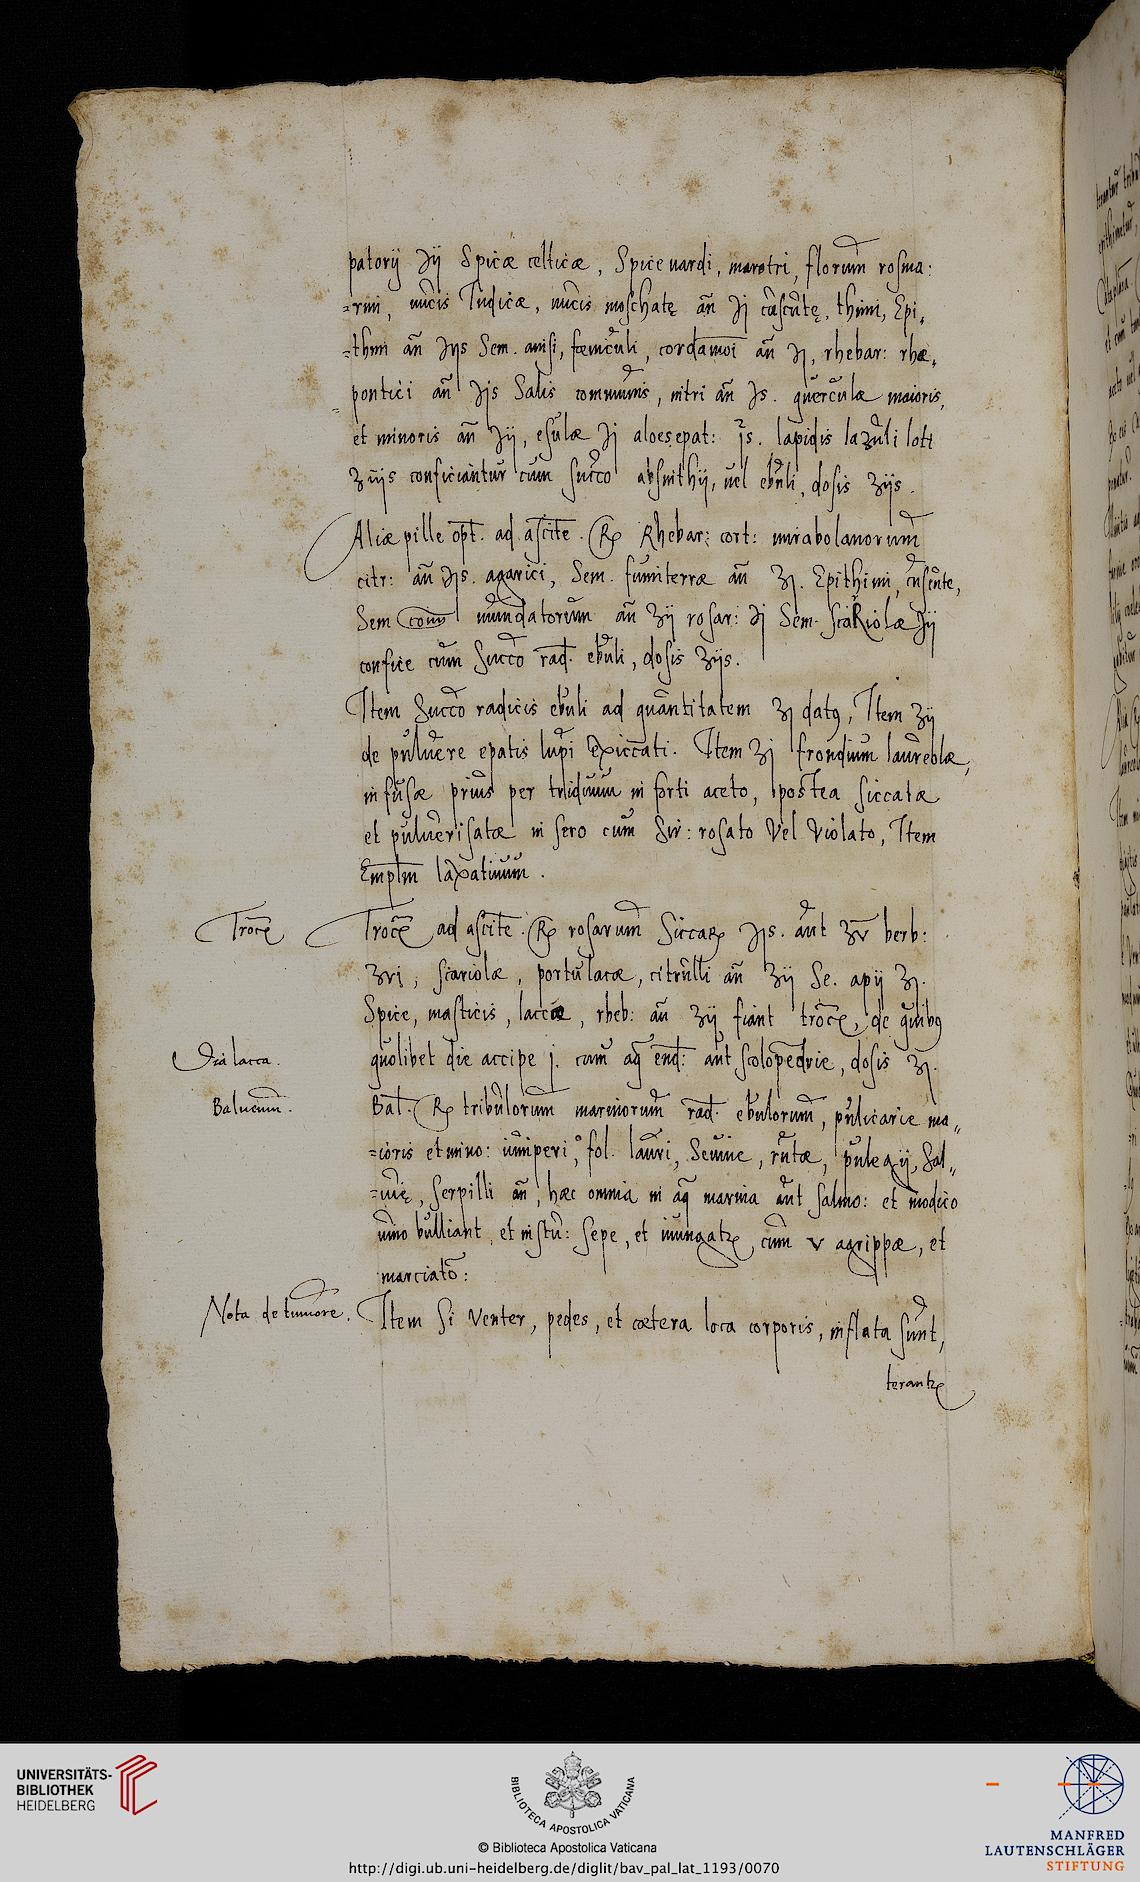 patorij ℈ij Spicæ celticæ, Spice nardi, maratri, florum rosma:
=rini, nucis Indicæ, nucis moschatę añ ℈j cascutę, thimi, Epi,,
=thimi añ ℈ijs Sem. anisi, fœniculi, cordamoi añ ℈j, rhebar: rhæ,,
=pontici añ ℈ijs Salis communis, nitri añ ℈s. querculæ maioris,
et minoris añ ℈ij, esulæ ℈j aloes epat: ℥s. lapidis lazuli loti
ʒiijs conficiantur cum succo absinthij, uel ebuli, dosis ʒijs.
Aliæ pille opt. ad ascite. ℞ Rhebar: cort: mirabolanorum
citr: añ ℈ijs. agarici, Sem. fumiterræ añ ʒj. Epithimi, cuscute,
Sem mundatorum añ ʒij rosar: ℈j Sem. scariolæ ℈ij
confice cum Succo rad. ebuli, dosis ʒijs.
Item Succo radicis ebuli ad quantitatem ʒj datꝫ, Item ʒij
de puluere epatis lupi exiccati. Item ʒj frondium laureolæ,
infusæ prius per triduum in forti aceto, postea siccatæ
et puluerisatæ in sero cum Sir: rosato Vel Violato, Item
Emplm laxatiuum.
Trocꝭ
Trocꝭ ad ascite. ℞ rosarum Siccarꝝ ℈js. aut ʒv berb:
ʒvi, scariolæ, portulacæ, citrulli añ ʒij Se. apij ʒj.
Spice, masticis, laccæ, rheb: añ ʒij fiant trocꝭ, de quibꝫ
Dia lacca.
quolibet die accipe j. cum aq̃ end: aut scolopedrie, dosis ʒj.
Balneum.
Bal. ℞ tribulorum marinorum rad. ebulorum, pulicarie ma,,
=ioris et mino: iuniperi, fol. lauri, Seuine, rutæ, pulegij, Sal,,
=uię, serpilli añ, hæc omnia in aq̃ marina aut salmo: et modico
uino bulliant, et in stu: sepe, et inungatꝭ cum v agrippæ, et
marciato:
Nota de tumore.
Item Si Venter, pedes, et cætera loca corporis, inflata sunt,
terantꝭ
UNIVERSITÄTS-
BIBLIOTHEK
HEIDELBERG
BIBLIOTECA APOSTOLICA VATICANA
© Biblioteca Apostolica Vaticana
http://digi.ub.uni-heidelberg.de/diglit/bav_pal_lat_1193/0070
MANFRED
LAUTENSCHLÄGER
STIFTUNG